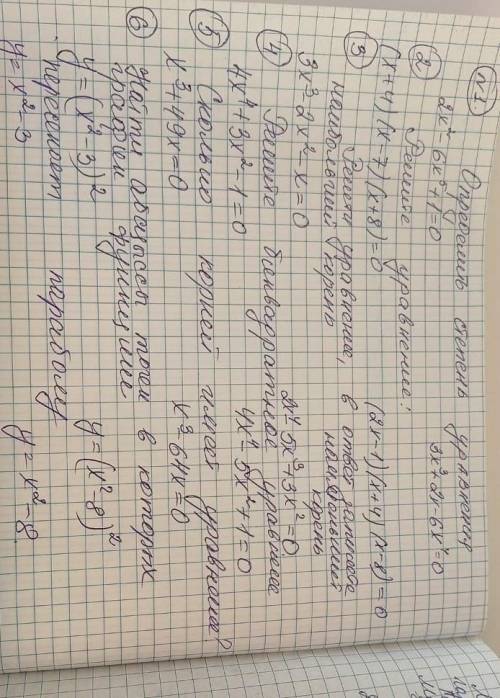 №1 Определить степень уравнения
2x² - 6x⁵ + 1 = 0 3x³ + 2x - 6x⁴ = 0
② Решите уравнение:
(x+4)(x-7)(x+8) = 0 (2x-1)(x+4)(x-8) = 0
③ Решить уравнение, в ответ запишите
наибольший корень наибольший
корень
3x³ - 2x² - x = 0 2x⁴ - 5x³ + 3x² = 0
④ Решите биквадратное уравнение
4x⁴ + 3x² - 1 = 0 4x⁴ - 5x² + 1 = 0
⑤ Сколько корней имеет уравнение?
x³ + 49x = 0 x³ - 64x = 0
⑥ Найти абциссы точек в которых
график функции
y = (x² - 3)² y = (x² - 8)²
пересекает параболу
y = x² - 3 y = x² - 8